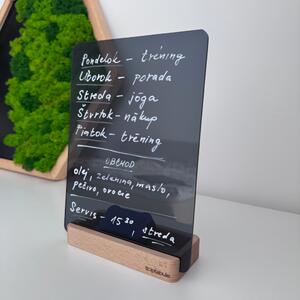 Pondelok - tréning
Utorok - porada
Streda - jóga
Štvrtok - nákup
Piatok - tréning
OBCHOD
olej, zelenina, maslo,
pečivo, ovocie
Servis - 15 30
streda